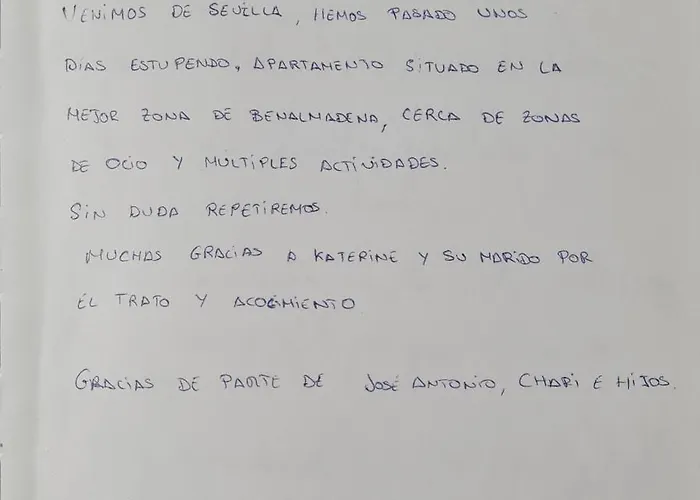 VENIMOS DE SEVILLA, HEMOS PASADO UNOS
DIAS ESTUPENDO, APARTAMENTO SITUADO EN LA
MEJOR ZONA DE BENALMADENA, CERCA DE ZONAS
DE OCIO Y MÚLTIPLES ACTIVIDADES.
SIN DUDA REPETIREMOS.
MUCHAS GRACIAS A KATERINE Y SU MARIDO POR
EL TRATO Y ACOGIMIENTO
GRACIAS DE PARTE DE JOSÉ ANTONIO, CHARI E HIJOS.